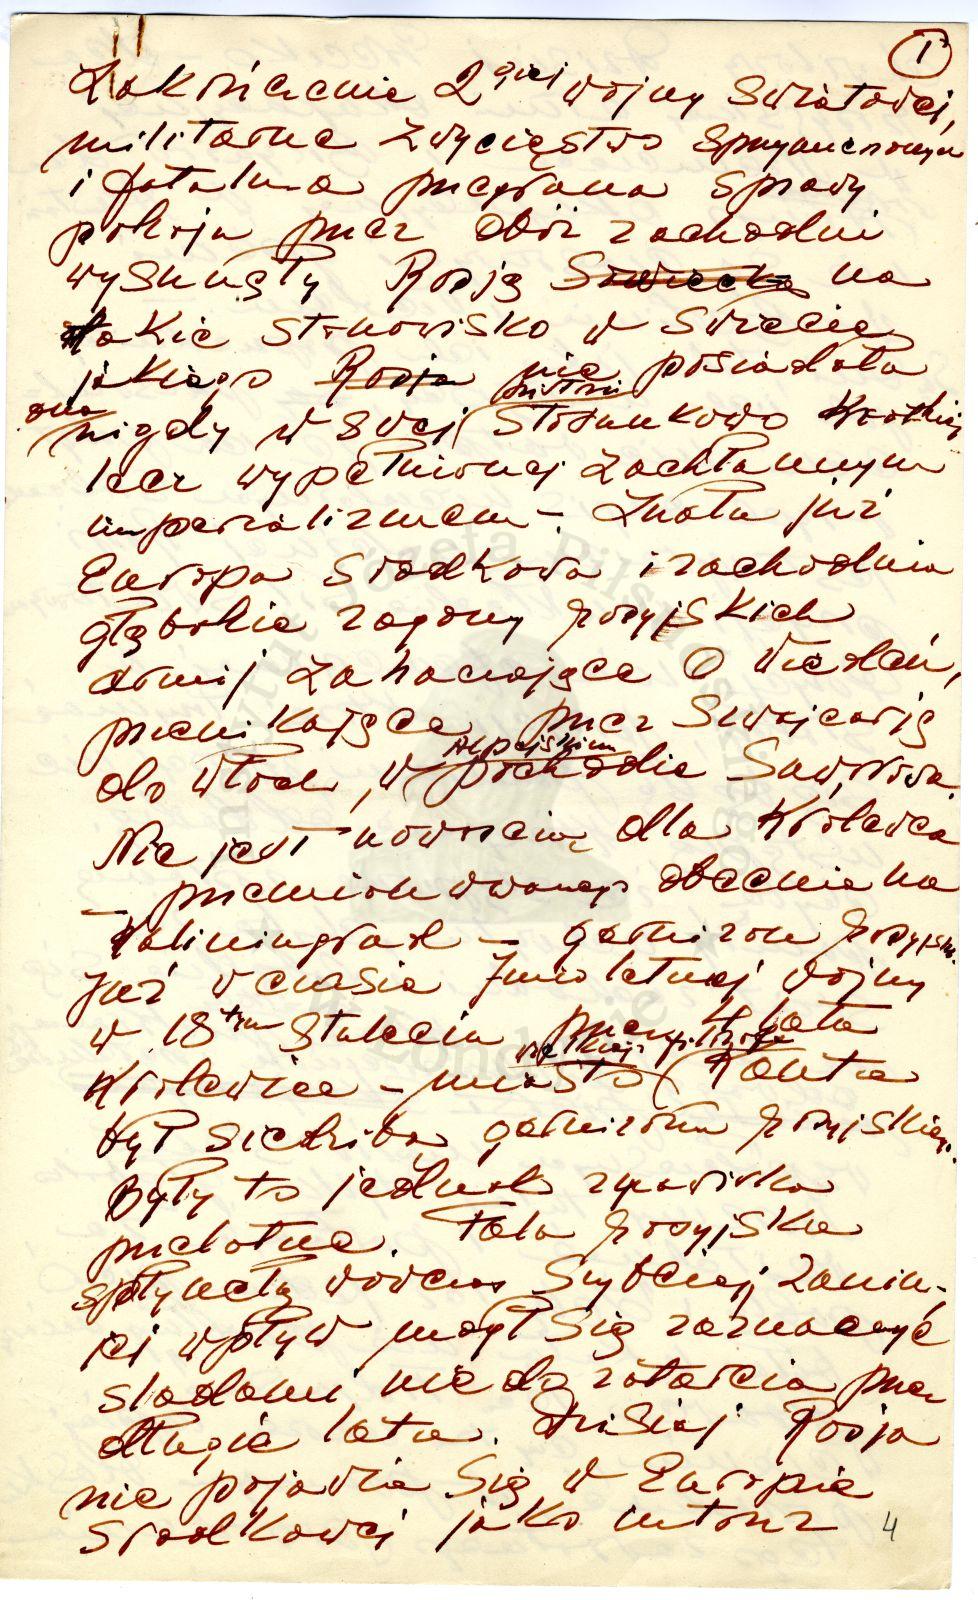 1
Zakończenie 2giej wojny światowej,
militarne zwycięstwo sprzymierzonych
i fatalna przegrana sprawy
pokoju przez obóz zachodni
wysunęły Rosję Sowiecką na
takie stanowisko w świecie
jakiego Rosja nie posiadała
ona nigdy w swej historii stosunkowo krótkiej
lecz wypełnionej zachłannym
imperializmem –. Znała już
Europa środkowa i zachodnia
głębokie zagony rosyjskich
armij zahaczające o Wiedeń,
przenikające przez Szwajcarię
do Włoch, w alpejskim pochodzie Suworowa.
Nie jest nowością dla Królewca
– przemianowanego obecnie na
Kaliningrad – garnizon rosyjski.
Już w czasie 7mio letniej wojny
w 18tym stuleciu przez 4 lata
Królewiec – miasto wielkiego filozofa Kanta
był siedzibą garnizonu rosyjskiego.
Były to jednak zjawiska
przelotne. Fala rosyjska
spłynęła wówczas szybciej zanim
jej wpływ mógł się zaznaczyć
śladami nie do zatarcia przez
długie lata. Dzisiaj Rosja
nie pojawia się w Europie
środkowej jako intruz
4
Instytut Józefa Piłsudskiego
w Londynie